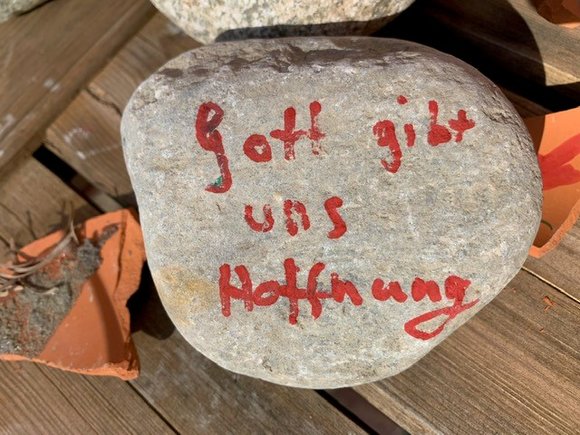 Gott gibt
uns
Hoffnung